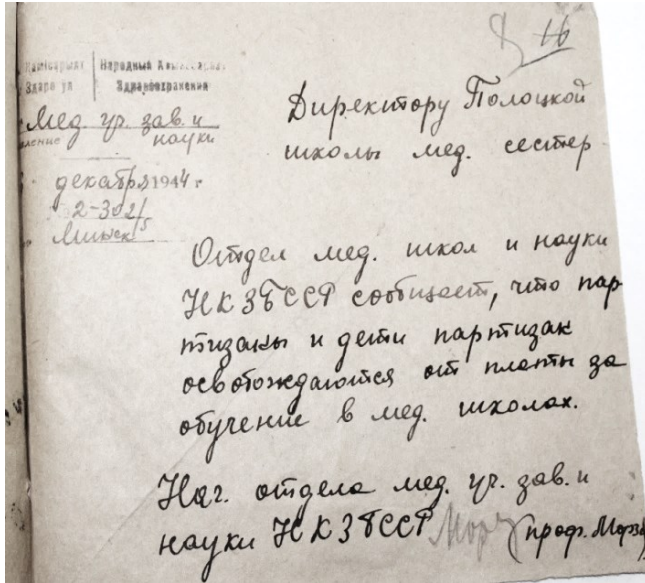 16
Народный Комиссариат
Здравоохранения
Мед уч. зав. и
науки
декабря 1944 г
2-302/5
Минск
Директору Полоцкой
школы мед. сестер
Отдел мед. школ и науки
НКЗБССР сообщает, что пар
тизаны и дети партизан
освобождаются от платы за
обучение в мед. школах.
Нач. отдела мед. уч. зав. и
науки НКЗБССР (проф.